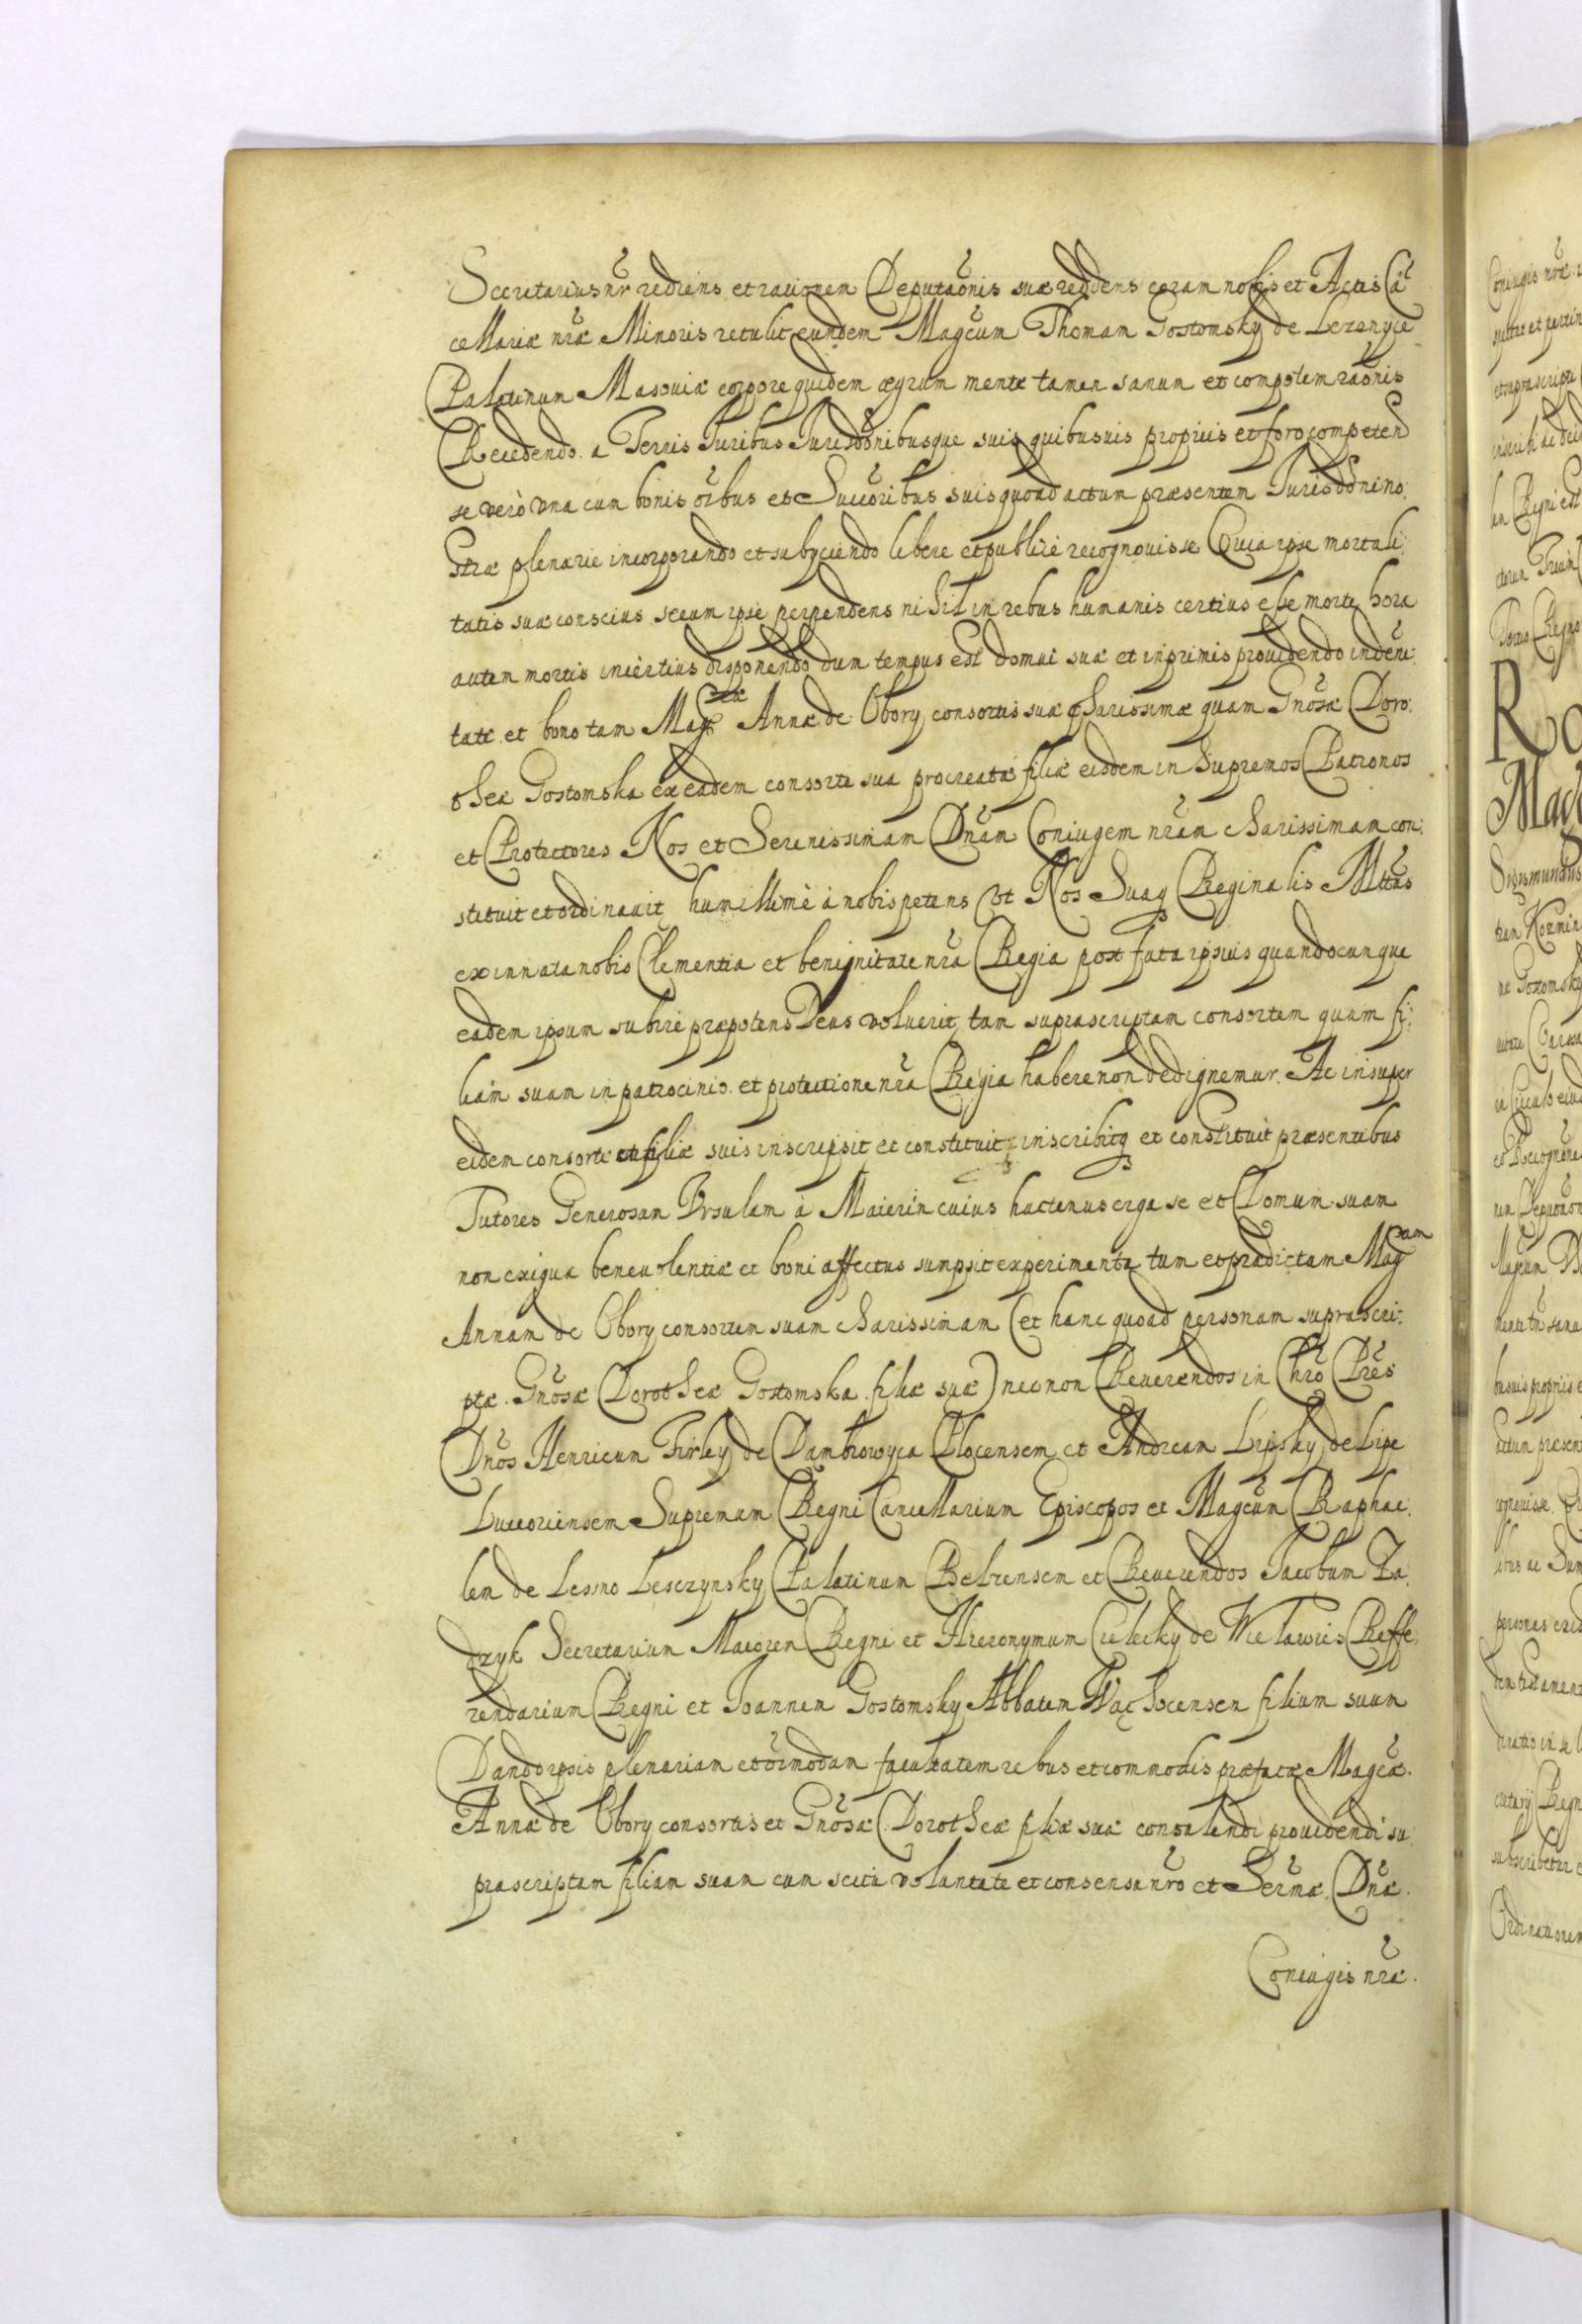 Secretarius nr̃ rediens et rationem Deputaõnis suæ reddens coram nobis et Actis Cã
cellariæ nr̃æ Minoris retulit eundem Magc̃um Thomam Gostomsky de Lezenyce
Palatinum Masoviæ corpore quidem ægrum mente tamen sanum et compotem raõnis
Recedendo a Terris Iuribus Iurisdõnibusque suis quibusvis propriis et foro competen
se verò vna cum bonis oĩbus et Succõribus suis quoad actum præsentem Iurisdõni no:
stræ plenarie incorporando et subyciendo libere et publicè recognouisse Quia ipse mortali:
tatis suæ conscius secum ipse perpendens nihil in rebus humanis certius esse morte hora
autem mortis incertius disponendo dum tempus est domui suæ et inprimis providendo indẽni:
tate et bono tam Magcæ Annæ de Obory consortis suæ charissimæ quam Gñosæ Doro:
theæ Gostomska ex eadem consorte sua procreatæ filiæ eisdem in Supremos Patronos
et Protectores Nos et Serenissimam Dñam Coniugem nr̃am charissimam con:
stituit et ordinavit humillimè à nobis petens vt Nos Suaq Reginalis Mttas
ex innata nobis Clementia et benignitate nr̃a Regia post fata ipsius quandocunque
eadem ipsum subire præpotens Deus voluerit, tam suprascriptam consortem quam fi:
liam suam in patrocinio et protectione nr̃a Regia habere non dedignemur. Ac insuper
eidem consorte et filiæ suis inscripsit et constituit inscribitq et constituit præsentibus
Tutores Generosam Vrsulam à Maierin cuius hactenus erga se et Domum suam
non exiguæ benevolentiæ et boni affectus sumpsit experimenta tum et prædictam Magcam
Annam de Obory consortem suam charissimam (et hanc quoad personam suprascri:
ptæ Gñosæ Dorotheæ Gostomska filiæ suæ) necnon Reverendos in Chr̃o Pr̃es
Dños Henricum Firley de Dambrowyca Plocensem et Andream Lipsky de Lipe
Luceoriensem Supremum Regni Cancellarium Episcopos et Magc̃um Raphae:
lem de Lesno Lesczynsky Palatinum Belzensem et Reverendos Iacobum Za:
dzyk Secretarium Maiorem Regni et Hieronymum Cielecky de Wielawies Reffe:
rendarium Regni et Ioannem Gostomsky Abbatem Wąchocensem filium suum
Dando ipsis plenariam et oĩmodam facultatem rebus et commodis præfatæ Magc̃æ
Annæ de Obory consortis et Gñosæ Dorotheæ filiæ suæ consulendi providendi su:
prascriptam filiam suam cum scitu voluntate et consensu nr̃o et Serm̃æ Dñæ
Coniugis nr̃æ.